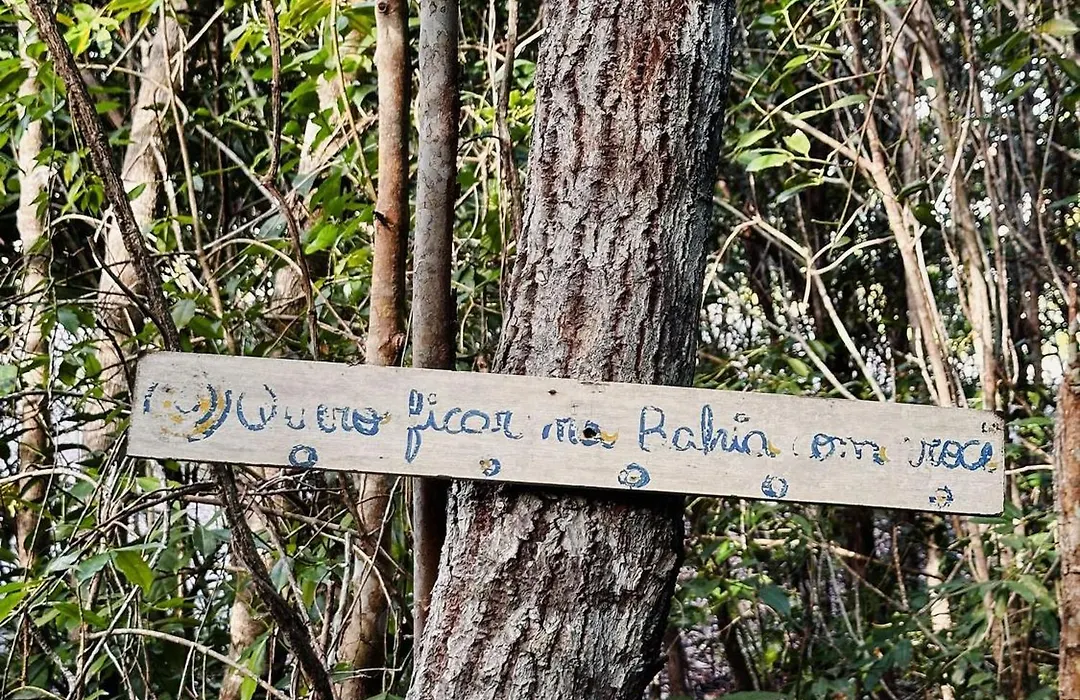 Quero ficar na Bahia com voce